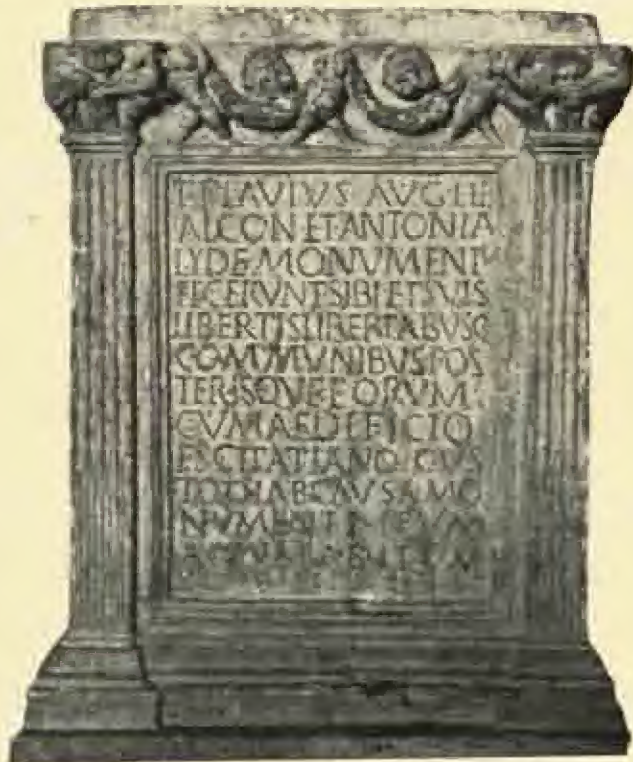 T FLAVIVS AVG LIB
ALCON ET ANTONIA
LYDE MONVMENT
FECERVNT SIBI ET SVIS
LIBERTIS LIBERTABVSQ
COMMVNIBVS POS
TERISQVE EORVM
CVM AEDIFICIO
CVS
TODIAE CAVSA MO
NVMENTI